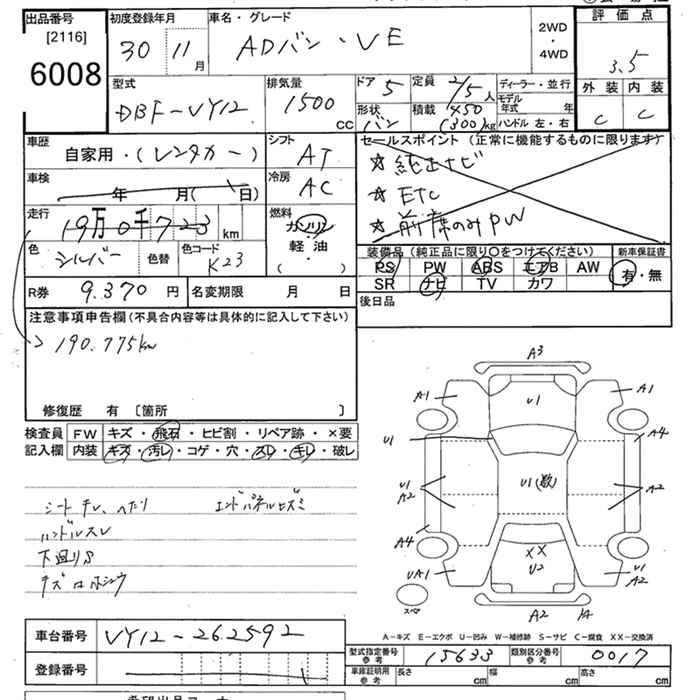 出品番号
[2116]
6008
初度登録年月
30年 11月
車名・グレード
ADバン・VE
2WD
・
4WD
評価点
3.5
外装 内装
C C
型式
DBF-VY12
排気量
1500
CC
ドア 5
定員 2/5人
形状 バン
積載 450
(300)kg
ディーラー・並行
モデル年式 年
ハンドル 左・右
車歴
自家用・(レンタカー)
シフト
AT
車検
年 月( 日)
冷房
AC
走行
19万0千723km
燃料
ガソリン
軽油
( ・ )
色
シルバー
色替
色コード
K23
R券 9.370円
名変期限 月 日
セールスポイント(正常に機能するものに限ります)
☆ 純正ナビ
☆ ETC
☆ 前席のみPW
装備品(純正品に限り〇をつけてください)
新車保証書
PS PW ABS エアB AW
SR ナビ TV カワ
有・無
後日品
注意事項申告欄(不具合内容等は具体的に記入して下さい)
→ 190.775km
修復歴 有〔箇所 〕
検査員
記入欄
FW キズ・飛石・ヒビ割・リペア跡・×要
内装 キズ・汚レ・コゲ・穴・スレ・キレ・破レ
シートキレ、ヘタリ
エンドパネルヒズミ
ハンドルスレ
下回りS
A3
A1
U1
A1
U1
A4
U1
A2
U1(数)
A2
A4
XX
U2
UA1
U1
A2
スペア
A2
A-キズ E-エクボ U-凹み W-補修跡 S-サビ C-腐食 XX-交換済
車台番号
VY12-262592
登録番号
型式指定番号
参考
15633
類別区分番号
参考
0017
車庫証明用
参考
長さ cm
幅 cm
高さ cm